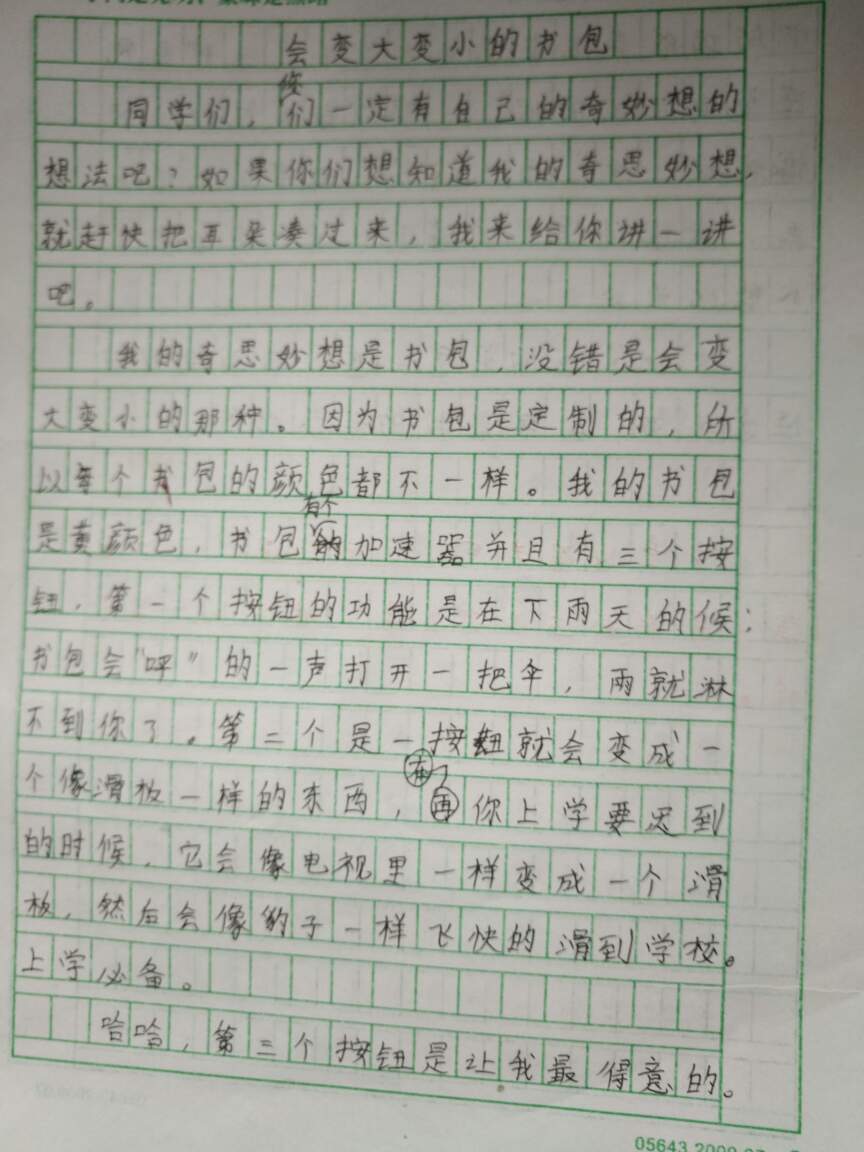 会变大变小的书包
同学们，你们一定有自己的奇妙想的
想法吧？如果你们想知道我的奇思妙想，
就赶快把耳朵凑过来，我来给你讲一讲
吧。
我的奇思妙想是书包，没错是会变
大变小的那种。因为书包是定制的，所
以每个书包的颜色都不一样。我的书包
是黄颜色，书包有个加速器并且有三个按
钮，第一个按钮的功能是在下雨天的候；
书包会“呯”的一声打开一把伞，雨就淋
不到你了。第二个是一按钮就会变成一
个像滑板一样的东西，在你上学要迟到
的时候，它会像电视里一样变成一个滑
板，然后会像豹子一样飞快的滑到学校。
上学必备。
哈哈，第三个按钮是让我最得意的。